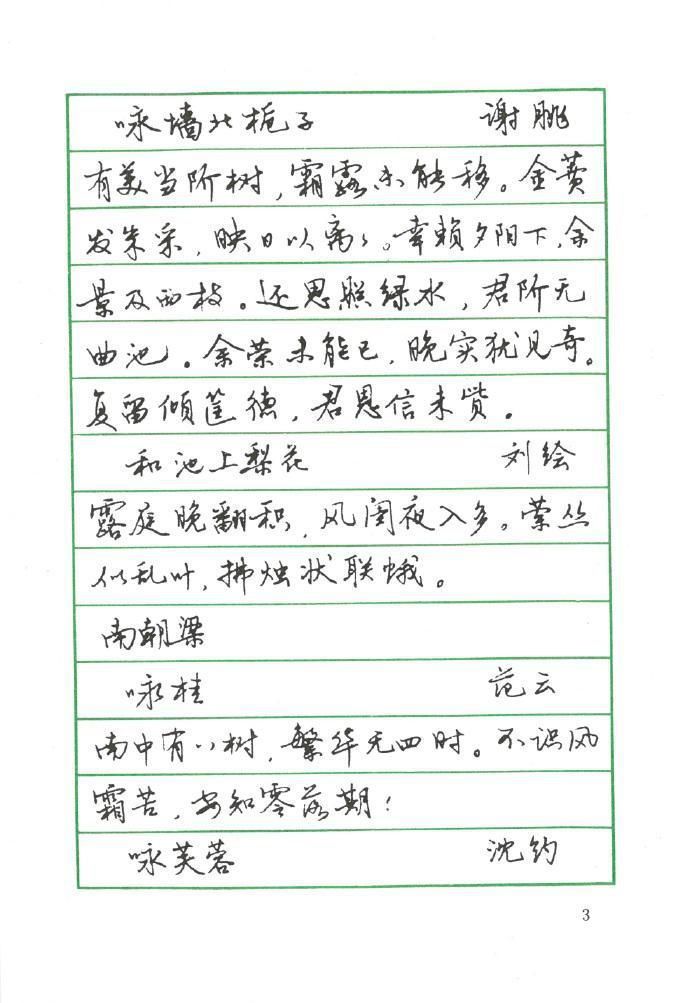 咏墙北栀子 谢朓
有美当阶树，霜露未能移。金蒉
发朱采，映日以离々。幸赖夕阳下，余
景及西枝。还思照绿水，君阶无
曲池。余荣未能已，晚实犹见奇。
复留倾筐德，君恩信未赀。
和池上梨花 刘绘
露庭晚翻积，风闺夜入多。萦丛
似乱叶，拂烛状联蛾。
南朝梁
咏桂 范云
南中有八树，繁华无四时。不识风
霜苦，安知零落期！
咏芙蓉 沈约
3